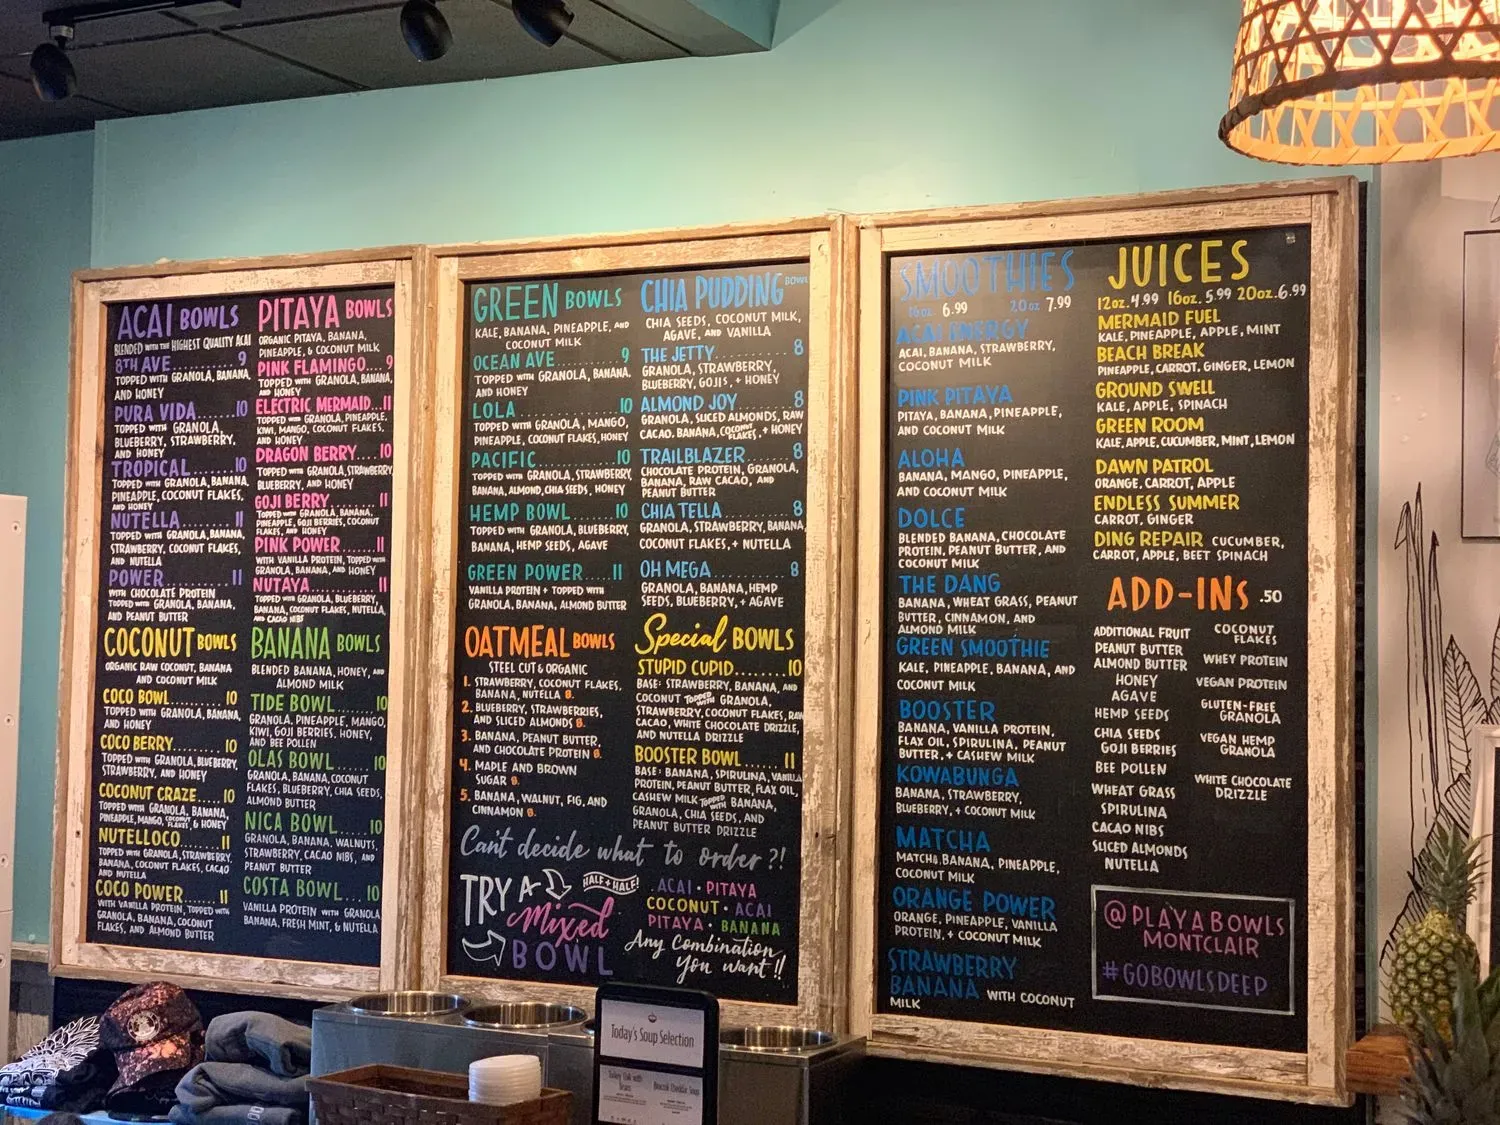 ACAI BOWLS
BLENDED WITH THE HIGHEST QUALITY ACAI
8TH AVE.........9
TOPPED WITH GRANOLA, BANANA,
AND HONEY
PURA VIDA......10
TOPPED WITH GRANOLA,
BLUEBERRY, STRAWBERRY,
AND HONEY
TROPICAL......10
TOPPED WITH GRANOLA, BANANA,
PINEAPPLE, COCONUT FLAKES,
AND HONEY
NUTELLA.......11
TOPPED WITH GRANOLA, BANANA,
STRAWBERRY, COCONUT FLAKES,
AND NUTELLA
POWER..........11
WITH CHOCOLATE PROTEIN
TOPPED WITH GRANOLA, BANANA,
AND PEANUT BUTTER
COCONUT BOWLS
ORGANIC RAW COCONUT, BANANA
AND COCONUT MILK
COCO BOWL.......10
TOPPED WITH GRANOLA, BANANA,
AND HONEY
COCO BERRY.......10
TOPPED WITH GRANOLA, BLUEBERRY,
STRAWBERRY, AND HONEY
COCONUT CRAZE.....10
TOPPED WITH GRANOLA, BANANA,
PINEAPPLE, MANGO, COCONUT FLAKES, & HONEY
NUTELLOCO.......11
TOPPED WITH GRANOLA, STRAWBERRY,
BANANA, COCONUT FLAKES, CACAO
AND NUTELLA
COCO POWER.....11
WITH VANILLA PROTEIN, TOPPED WITH
GRANOLA, BANANA, COCONUT
FLAKES, AND ALMOND BUTTER
PITAYA BOWLS
ORGANIC PITAYA, BANANA,
PINEAPPLE, & COCONUT MILK
PINK FLAMINGO...9
TOPPED WITH GRANOLA, BANANA,
AND HONEY
ELECTRIC MERMAID...11
TOPPED WITH GRANOLA, PINEAPPLE,
KIWI, MANGO, COCONUT FLAKES,
AND HONEY
DRAGON BERRY....10
TOPPED WITH GRANOLA, STRAWBERRY,
BLUEBERRY, AND HONEY
GOJI BERRY......11
TOPPED WITH GRANOLA, BANANA,
PINEAPPLE, GOJI BERRIES, COCONUT
FLAKES, AND HONEY
PINK POWER......11
WITH VANILLA PROTEIN, TOPPED WITH
GRANOLA, BANANA, AND HONEY
NUTAYA..........11
TOPPED WITH GRANOLA, BLUEBERRY,
BANANA, COCONUT FLAKES, NUTELLA,
AND CACAO NIBS
BANANA BOWLS
BLENDED BANANA, HONEY, AND
ALMOND MILK
TIDE BOWL......10
GRANOLA, PINEAPPLE, MANGO,
KIWI, GOJI BERRIES, HONEY,
AND BEE POLLEN
OLAS BOWL.....10
GRANOLA, BANANA, COCONUT
FLAKES, BLUEBERRY, CHIA SEEDS,
ALMOND BUTTER
NICA BOWL.....10
GRANOLA, BANANA, WALNUTS,
STRAWBERRY, CACAO NIBS, AND
PEANUT BUTTER
COSTA BOWL....10
VANILLA PROTEIN WITH GRANOLA
BANANA, FRESH MINT, & NUTELLA
GREEN BOWLS
KALE, BANANA, PINEAPPLE, AND
COCONUT MILK
OCEAN AVE........9
TOPPED WITH GRANOLA, BANANA,
AND HONEY
LOLA..............10
TOPPED WITH GRANOLA, MANGO,
PINEAPPLE, COCONUT FLAKES, HONEY
PACIFIC...........10
TOPPED WITH GRANOLA, STRAWBERRY,
BANANA, ALMOND, CHIA SEEDS, HONEY
HEMP BOWL......10
TOPPED WITH GRANOLA, BLUEBERRY,
BANANA, HEMP SEEDS, AGAVE
GREEN POWER.....11
VANILLA PROTEIN + TOPPED WITH
GRANOLA, BANANA, ALMOND BUTTER
OATMEAL BOWLS
STEEL CUT & ORGANIC
1. STRAWBERRY, COCONUT FLAKES,
BANANA, NUTELLA 8.
2. BLUEBERRY, STRAWBERRIES,
AND SLICED ALMONDS 8.
3. BANANA, PEANUT BUTTER,
AND CHOCOLATE PROTEIN 8.
4. MAPLE AND BROWN
SUGAR 8.
5. BANANA, WALNUT, FIG, AND
CINNAMON 8.
CHIA PUDDING BOWL
CHIA SEEDS, COCONUT MILK,
AGAVE, AND VANILLA
THE JETTY..........8
GRANOLA, STRAWBERRY,
BLUEBERRY, GOJIS, + HONEY
ALMOND JOY.......8
GRANOLA, SLICED ALMONDS, RAW
CACAO, BANANA, COCONUT FLAKES, + HONEY
TRAILBLAZER......8
CHOCOLATE PROTEIN, GRANOLA,
BANANA, RAW CACAO, AND
PEANUT BUTTER
CHIA TELLA.......8
GRANOLA, STRAWBERRY, BANANA,
COCONUT FLAKES, + NUTELLA
OH MEGA..........8
GRANOLA, BANANA, HEMP
SEEDS, BLUEBERRY, + AGAVE
Special BOWLS
STUPID CUPID.......10
BASE: STRAWBERRY, BANANA, AND
COCONUT TOPPED WITH GRANOLA,
STRAWBERRY, COCONUT FLAKES, RAW
CACAO, WHITE CHOCOLATE DRIZZLE,
AND NUTELLA DRIZZLE
BOOSTER BOWL.....11
BASE: BANANA, SPIRULINA, VANILLA
PROTEIN, PEANUT BUTTER, FLAX OIL,
CASHEW MILK TOPPED WITH BANANA,
GRANOLA, CHIA SEEDS, AND
PEANUT BUTTER DRIZZLE
Can't decide what to order?!
TRY A Mixed BOWL
HALF + HALF!
ACAI • PITAYA
COCONUT • ACAI
PITAYA • BANANA
Any Combination
You want!!
SMOOTHIES
16oz. 6.99 20oz 7.99
ACAI ENERGY
ACAI, BANANA, STRAWBERRY,
COCONUT MILK
PINK PITAYA
PITAYA, BANANA, PINEAPPLE,
AND COCONUT MILK
ALOHA
BANANA, MANGO, PINEAPPLE,
AND COCONUT MILK
DOLCE
BLENDED BANANA, CHOCOLATE
PROTEIN, PEANUT BUTTER, AND
COCONUT MILK
THE DANG
BANANA, WHEAT GRASS, PEANUT
BUTTER, CINNAMON, AND
ALMOND MILK
GREEN SMOOTHIE
KALE, PINEAPPLE, BANANA, AND
COCONUT MILK
BOOSTER
BANANA, VANILLA PROTEIN,
FLAX OIL, SPIRULINA, PEANUT
BUTTER, + CASHEW MILK
KOWABUNGA
BANANA, STRAWBERRY,
BLUEBERRY, + COCONUT MILK
MATCHA
MATCHA, BANANA, PINEAPPLE,
COCONUT MILK
ORANGE POWER
ORANGE, PINEAPPLE, VANILLA
PROTEIN, + COCONUT MILK
STRAWBERRY
BANANA WITH COCONUT
MILK
JUICES
12oz. 4.99 16oz. 5.99 20oz. 6.99
MERMAID FUEL
KALE, PINEAPPLE, APPLE, MINT
BEACH BREAK
PINEAPPLE, CARROT, GINGER, LEMON
GROUND SWELL
KALE, APPLE, SPINACH
GREEN ROOM
KALE, APPLE, CUCUMBER, MINT, LEMON
DAWN PATROL
ORANGE, CARROT, APPLE
ENDLESS SUMMER
CARROT, GINGER
DING REPAIR CUCUMBER,
CARROT, APPLE, BEET SPINACH
ADD-INS .50
ADDITIONAL FRUIT
PEANUT BUTTER
ALMOND BUTTER
HONEY
AGAVE
HEMP SEEDS
CHIA SEEDS
GOJI BERRIES
BEE POLLEN
WHEAT GRASS
SPIRULINA
CACAO NIBS
SLICED ALMONDS
NUTELLA
COCONUT
FLAKES
WHEY PROTEIN
VEGAN PROTEIN
GLUTEN-FREE
GRANOLA
VEGAN HEMP
GRANOLA
WHITE CHOCOLATE
DRIZZLE
@PLAYABOWLS
MONTCLAIR
#GOBOWLSDEEP
Today's Soup Selection